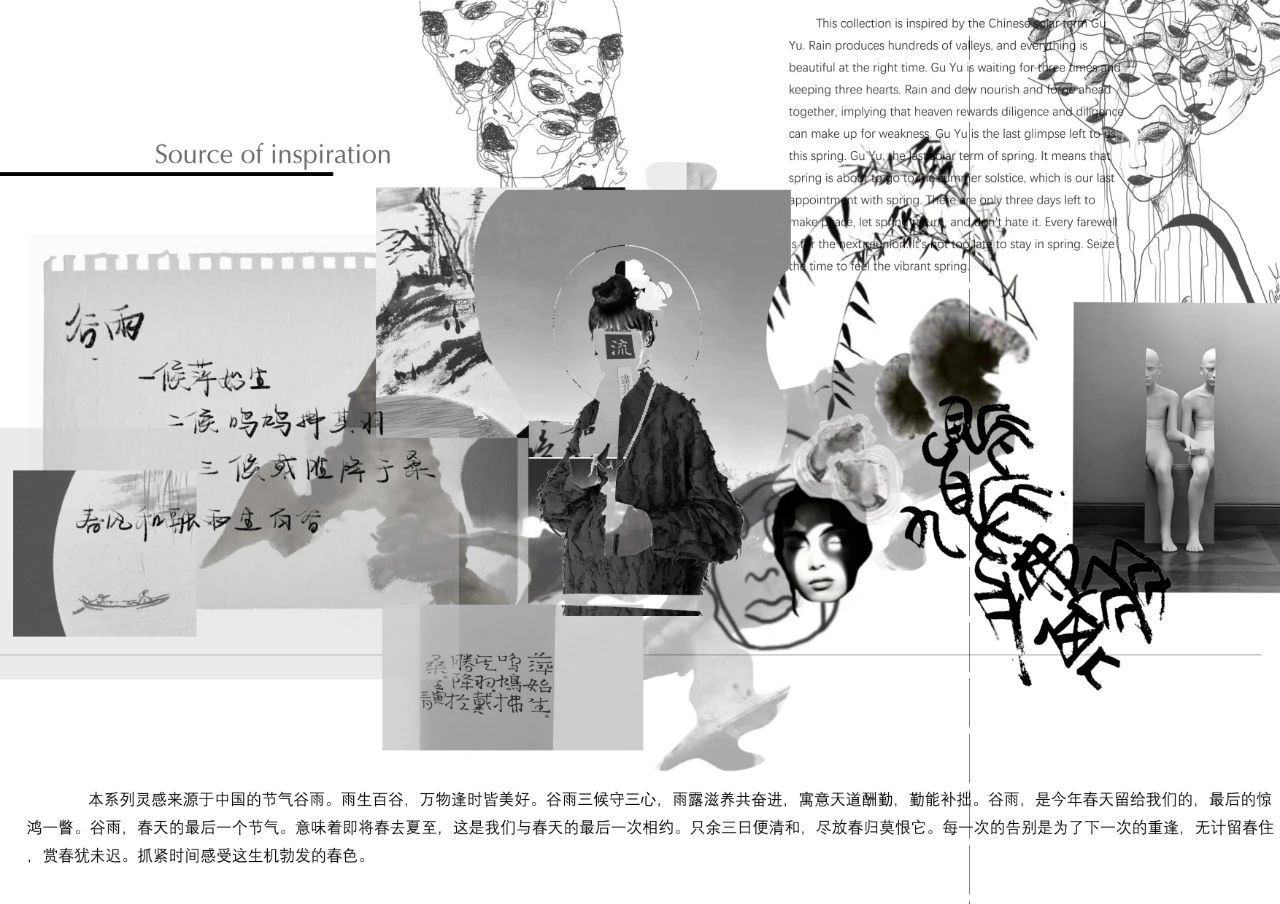 Source of inspiration
This collection is inspired by the Chinese solar term Gu
Yu. Rain produces hundreds of valleys, and everything is
beautiful at the right time. Gu Yu is waiting for three times and
keeping three hearts. Rain and dew nourish and forge ahead
together, implying that heaven rewards diligence and diligence
can make up for weakness. Gu Yu is the last glimpse left to us
this spring. Gu Yu, the last solar term of spring. It means that
spring is about to go to the summer solstice, which is our last
appointment with spring. There are only three days left to
make peace, let spring return, and don't hate it. Every farewell
is for the next reunion. It's not too late to stay in spring. Seize
the time to feel the vibrant spring.
谷雨
一候萍始生
二候鸣鸠拂其羽
三候戴胜降于桑
春风和融雨生百谷
流
萍始生。
鸣鸠拂
其羽。戴
勝降於
桑。
本系列灵感来源于中国的节气谷雨。雨生百谷，万物逢时皆美好。谷雨三候守三心，雨露滋养共奋进，寓意天道酬勤，勤能补拙。谷雨，是今年春天留给我们的，最后的惊
鸿一瞥。谷雨，春天的最后一个节气。意味着即将春去夏至，这是我们与春天的最后一次相约。只余三日便清和，尽放春归莫恨它。每一次的告别是为了下一次的重逢，无计留春住
，赏春犹未迟。抓紧时间感受这生机勃发的春色。